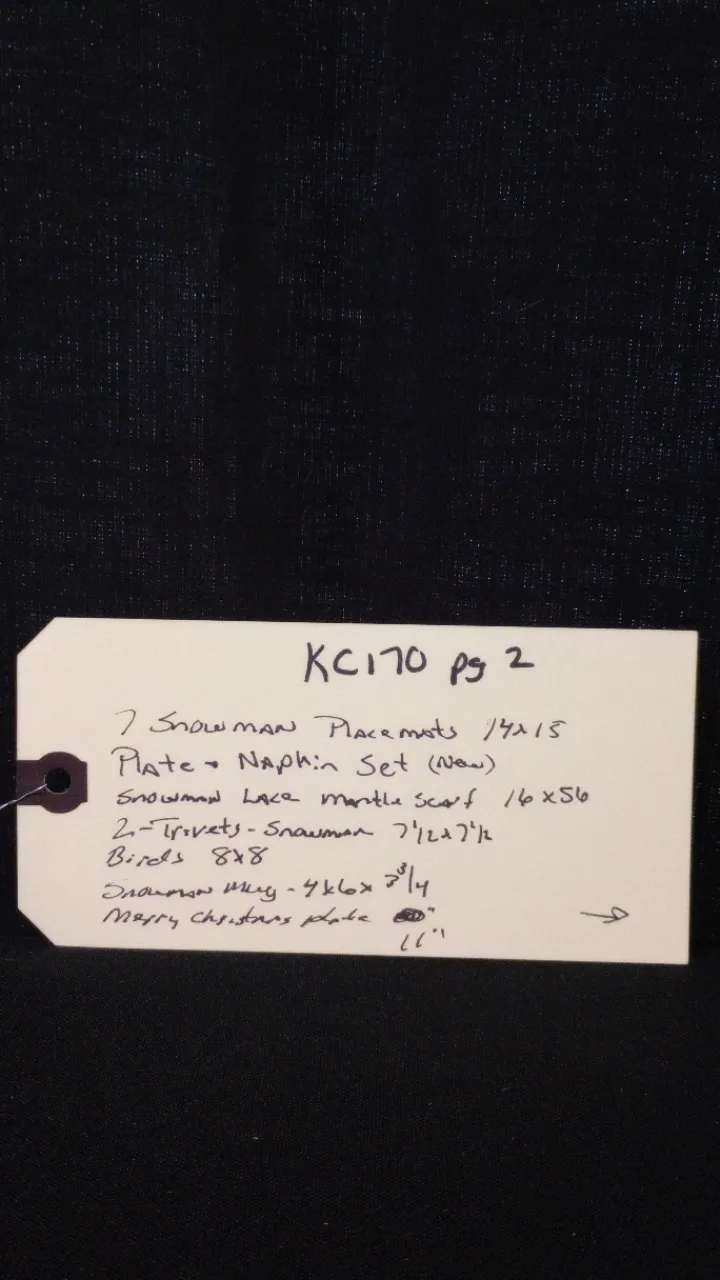 KC170 pg 2
7 Snowman Placemats 14x15
Plate + Napkin Set (New)
Snowman Lace mantle scarf 16x56
2-Trivets - Snowman 7 1/2x7 1/2
Birds 8x8
Snowman Mug - 4x6x 3 3/4
Merry Christmas plate "
11"
→